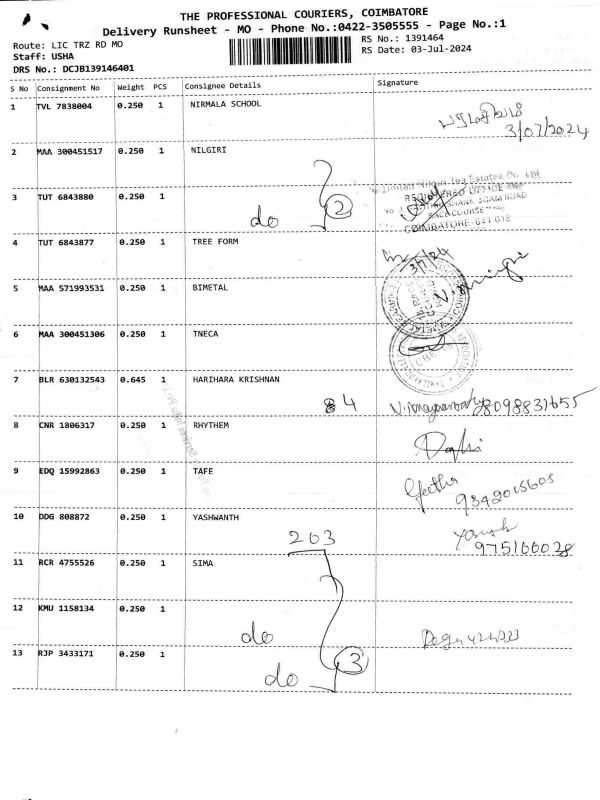 THE PROFESSIONAL COURIERS, COIMBATORE
Delivery Runsheet - MO - Phone No.:0422-3505555 - Page No.:1
Route: LIC TRZ RD MO
RS No.: 1391464
Staff: USHA
RS Date: 03-Jul-2024
DRS No.: DCJB139146401
S No Consignment No Weight PCS Consignee Details Signature
1 TVL 7838004 0.250 1 NIRMALA SCHOOL
3/07/2024
2 MAA 300451517 0.250 1 NILGIRI
Tea Estates
REGISTERED OFFICE
3 TUT 6843880 0.250 1
RACE COURSE
do 2
COIMBATORE-641 018
4 TUT 6843877 0.250 1 TREE FORM
3/7/24
5 MAA 571993531 0.250 1 BIMETAL
6 MAA 300451306 0.250 1 TNECA
7 BLR 630132543 0.645 1 HARIHARA KRISHNAN
84 8098831655
8 CNR 1806317 0.250 1 RHYTHEM
9 EDQ 15992863 0.250 1 TAFE
Geetha
9342015605
10 DDG 808872 0.250 1 YASHWANTH
203
975166028
11 RCR 4755526 0.250 1 SIMA
12 KMU 1158134 0.250 1
do
13 RJP 3433171 0.250 1
3
do